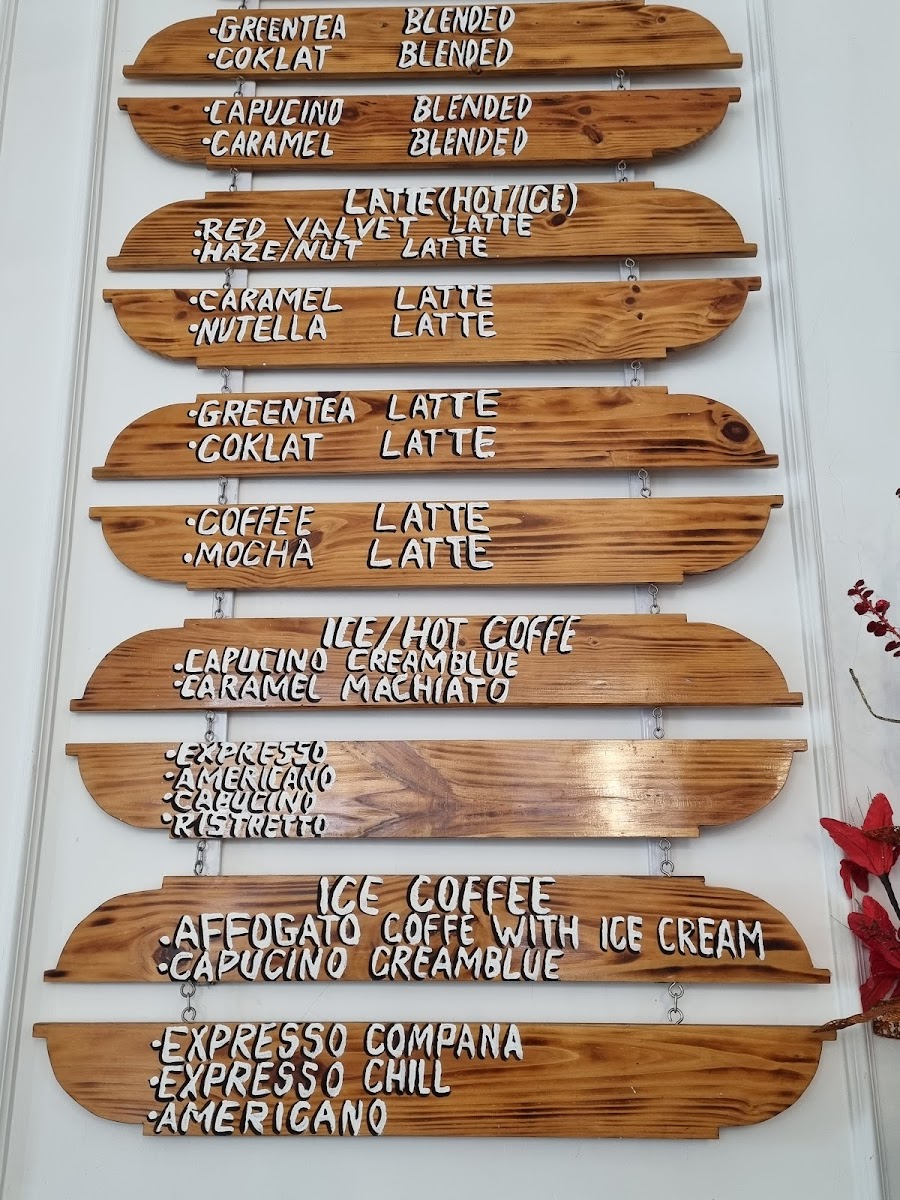 •GREENTEA BLENDED
•COKLAT BLENDED
•CAPUCINO BLENDED
•CARAMEL BLENDED
LATTE(HOT/ICE)
•RED VALVET LATTE
•HAZE/NUT LATTE
•CARAMEL LATTE
•NUTELLA LATTE
•GREENTEA LATTE
•COKLAT LATTE
•COFFEE LATTE
•MOCHA LATTE
ICE/HOT COFFE
•CAPUCINO CREAMBLUE
•CARAMEL MACHIATO
•EXPRESSO
•AMERICANO
•CAPUCINO
•RISTRETTO
ICE COFFEE
•AFFOGATO COFFE WITH ICE CREAM
•CAPUCINO CREAMBLUE
•EXPRESSO COMPANA
•EXPRESSO CHILL
•AMERICANO